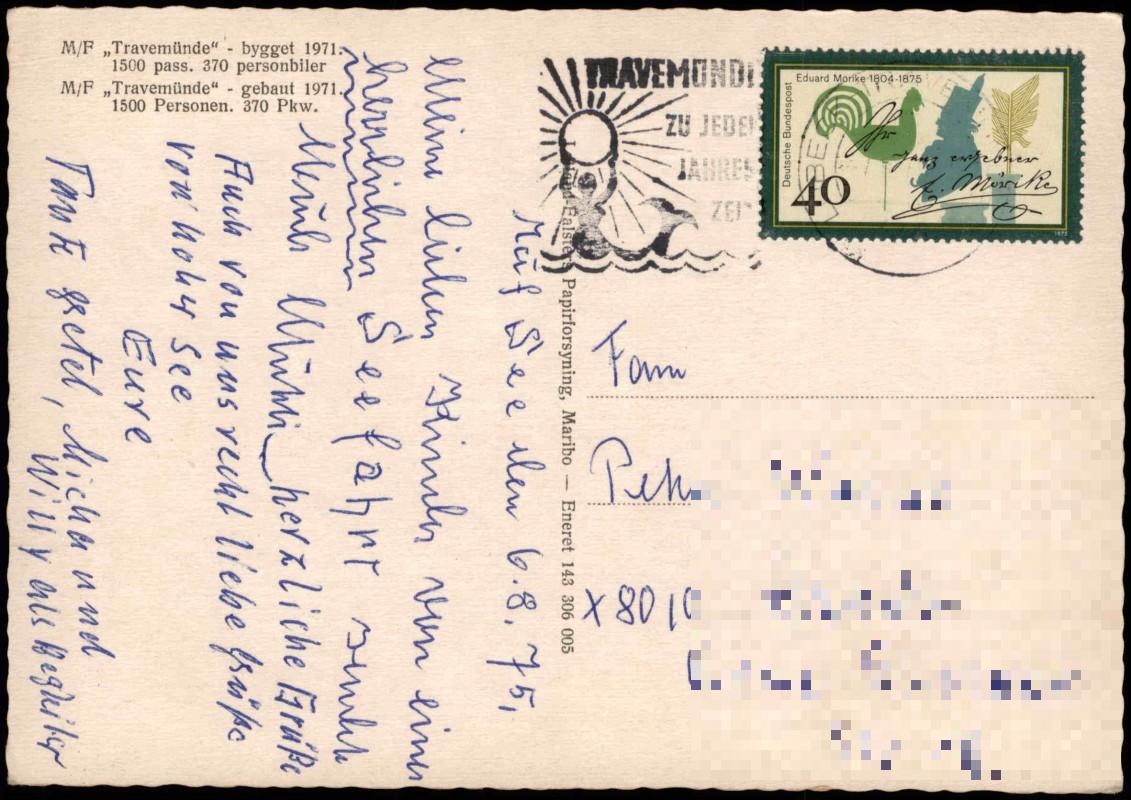 M/F „Travemünde“ - bygget 1971.
1500 pass. 370 personbiler
M/F „Travemünde“ - gebaut 1971.
1500 Personen. 370 Pkw.
TRAVEMÜNDE
ZU JEDER
JAHRES
ZEIT
Deutsche Bundespost
Eduard Mörike 1804-1875
Ihr
ganz ergebner
E. Mörike
40
1975
Lolland-Falsters Papirforsyning, Maribo — Eneret 143 306 005
Auf See den 6.8.75,
Meine lieben Kinder von einer
herrlichen Seefahrt sendet
Euch Mutti herzliche Grüße
Auch von uns recht liebe Grüße
von hoher See
Eure
Tante Gretel, Micha und
Willy als Begleiter
Fam
X 801